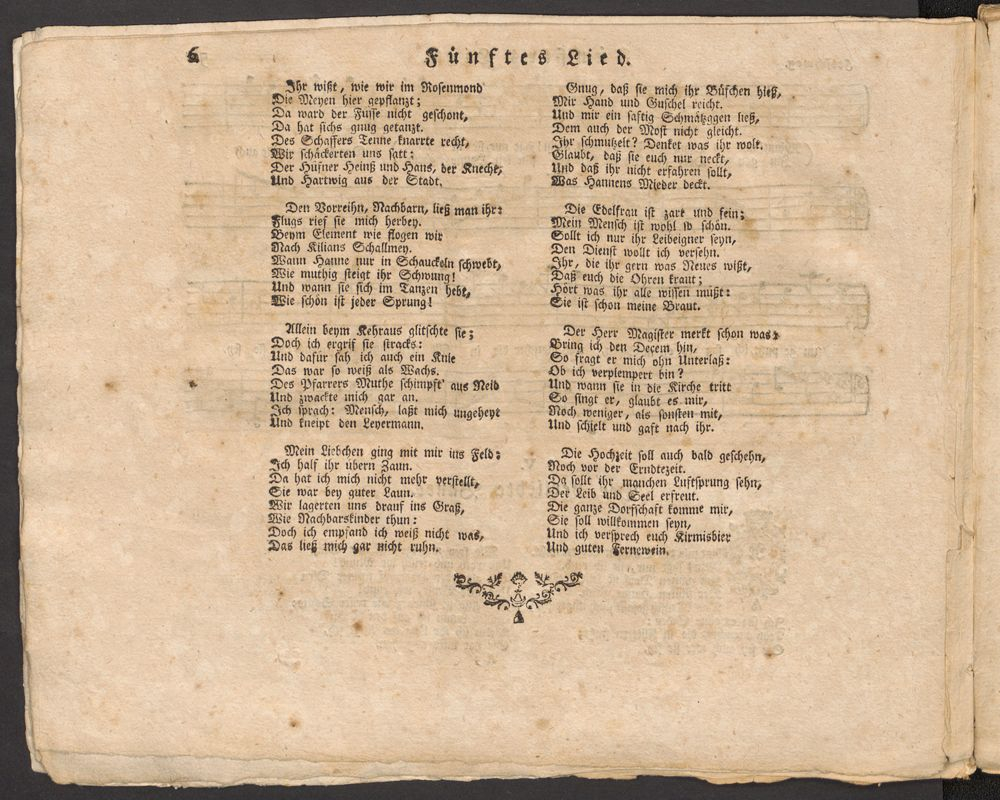 6
Fünftes Lied.
Ihr wißt, wie wir im Rosenmond
Die Meyen hier gepflanzt;
Da ward der Füsse nicht geschont,
Da hat sichs gnug getanzt.
Des Schaffers Tenne knarrte recht,
Wir schäckerten uns satt:
Der Hüfner Heinß und Hans, der Knecht,
Und Hartwig aus der Stadt.
Den Vorreihn, Nachbarn, ließ man ihr:
Flugs rief sie mich herbey.
Beym Element wie flogen wir
Nach Kilians Schallmey.
Wann Hanne nur in Schauckeln schwebt,
Wie muthig steigt ihr Schwung!
Und wann sie sich im Tanzen hebt,
Wie schön ist jeder Sprung!
Allein beym Kehraus glitschte sie;
Doch ich ergrif sie stracks:
Und dafür sah ich auch ein Knie
Das war so weiß als Wachs.
Des Pfarrers Muthe schimpft' aus Neid
Und zwackte mich gar an.
Ich sprach: Mensch, laßt mich ungeheyt
Und kneipt den Leyermann.
Mein Liebchen ging mit mir ins Feld:
Ich half ihr übern Zaun.
Da hat ich mich nicht mehr verstellt,
Sie war bey guter Laun.
Wir lagerten uns drauf ins Graß,
Wie Nachbarskinder thun:
Doch ich empfand ich weiß nicht was,
Das ließ mich gar nicht ruhn.
Gnug, daß sie mich ihr Büschen hieß,
Mir Hand und Guschel reicht.
Und mir ein saftig Schmätzgen ließ,
Dem auch der Most nicht gleicht.
Ihr schmutzelt? Denket was ihr wolt.
Glaubt, daß sie euch nur neckt,
Und daß ihr nicht erfahren sollt,
Was Hannens Mieder deckt.
Die Edelfrau ist zart und fein;
Mein Mensch ist wohl so schön.
Sollt ich nur ihr Leibeigner seyn,
Den Dienst wollt ich versehn.
Ihr, die ihr gern was Neues wißt,
Daß euch die Ohren kraut;
Hört was ihr alle wissen müßt:
Sie ist schon meine Braut.
Der Herr Magister merkt schon was:
Bring ich den Decem hin,
So fragt er mich ohn Unterlaß:
Ob ich verplempert bin?
Und wann sie in die Kirche tritt
So singt er, glaubt es mir,
Noch weniger, als sonsten mit,
Und schielt und gaft nach ihr.
Die Hochzeit soll auch bald geschehn,
Noch vor der Erndtezeit.
Da sollt ihr manchen Luftsprung sehn,
Der Leib und Seel erfreut.
Die ganze Dorfschaft komme mir,
Sie soll willkommen seyn,
Und ich versprech euch Kirmisbier
Und guten Fernewein.